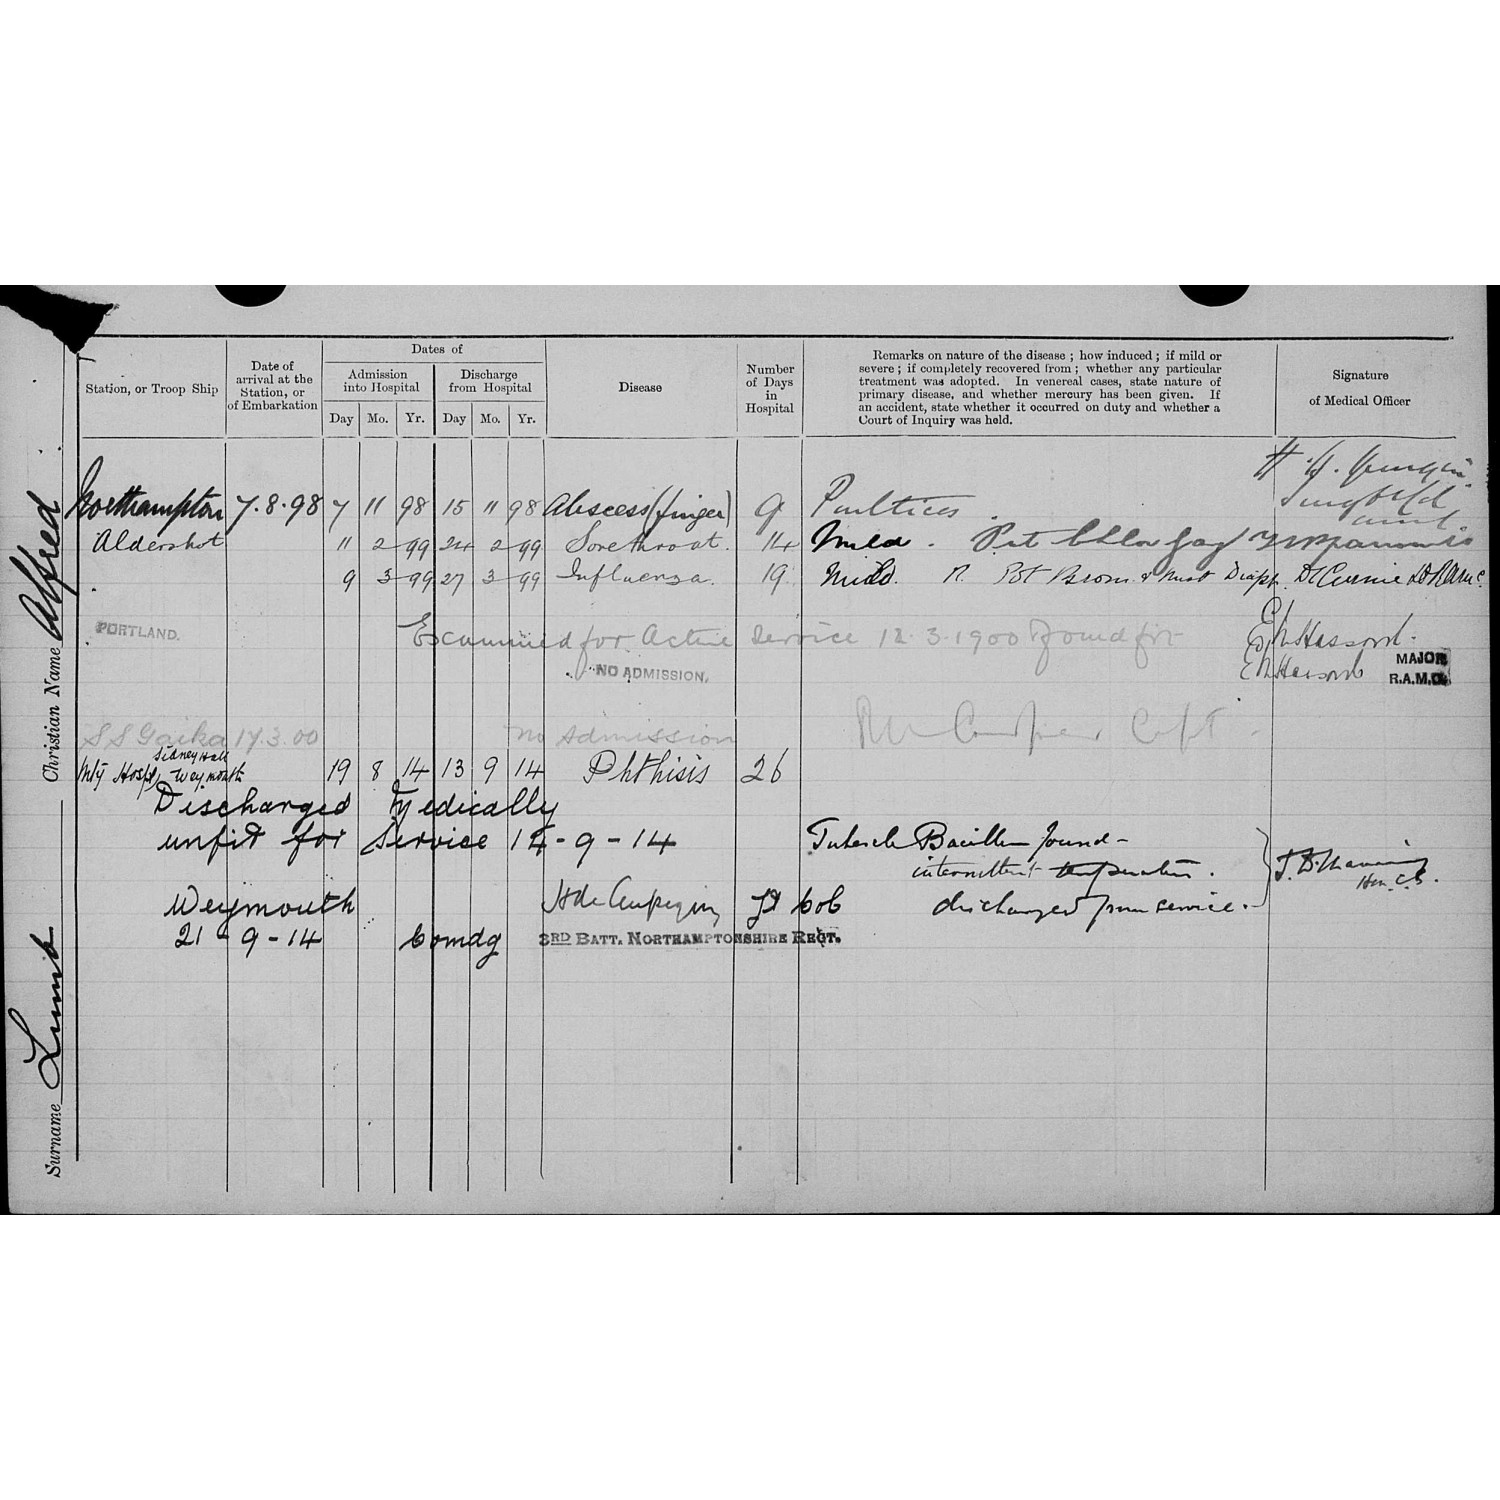 Surname Lumb Christian Name Alfred
Station, or Troop Ship
Date of arrival at the Station, or of Embarkation
Dates of
Admission into Hospital
Discharge from Hospital
Day Mo. Yr. Day Mo. Yr.
Disease
Number of Days in Hospital
Remarks on nature of the disease ; how induced ; if mild or
severe ; if completely recovered from ; whether any particular
treatment was adopted. In venereal cases, state nature of
primary disease, and whether mercury has been given. If
an accident, state whether it occurred on duty and whether a
Court of Inquiry was held.
Signature
of Medical Officer
Northampton 7.8.98 7 11 98 15 11 98 Abscess (finger) 9 Poultices
Aldershot 11 2 99 24 2 99 Sorethroat. 14 Mild.
9 3 99 27 3 99 Influenza. 19 Mild. Pot Brom
PORTLAND. Examined for Active Service 12.3.1900 Found fit
NO ADMISSION.
MAJOR
R.A.M.C.
S S Gaika 17.3.00 no admission Capt
Sidney Hall
Mty Hospl, Weymouth 19 8 14 13 9 14 Phthisis 26
Discharged Medically
unfit for Service 14-9-14
Tubercle Bacillus found-
intermittent temperature.
discharged from service.
Weymouth
21-9-14 Comdg 3RD BATT. NORTHAMPTONSHIRE REGT.